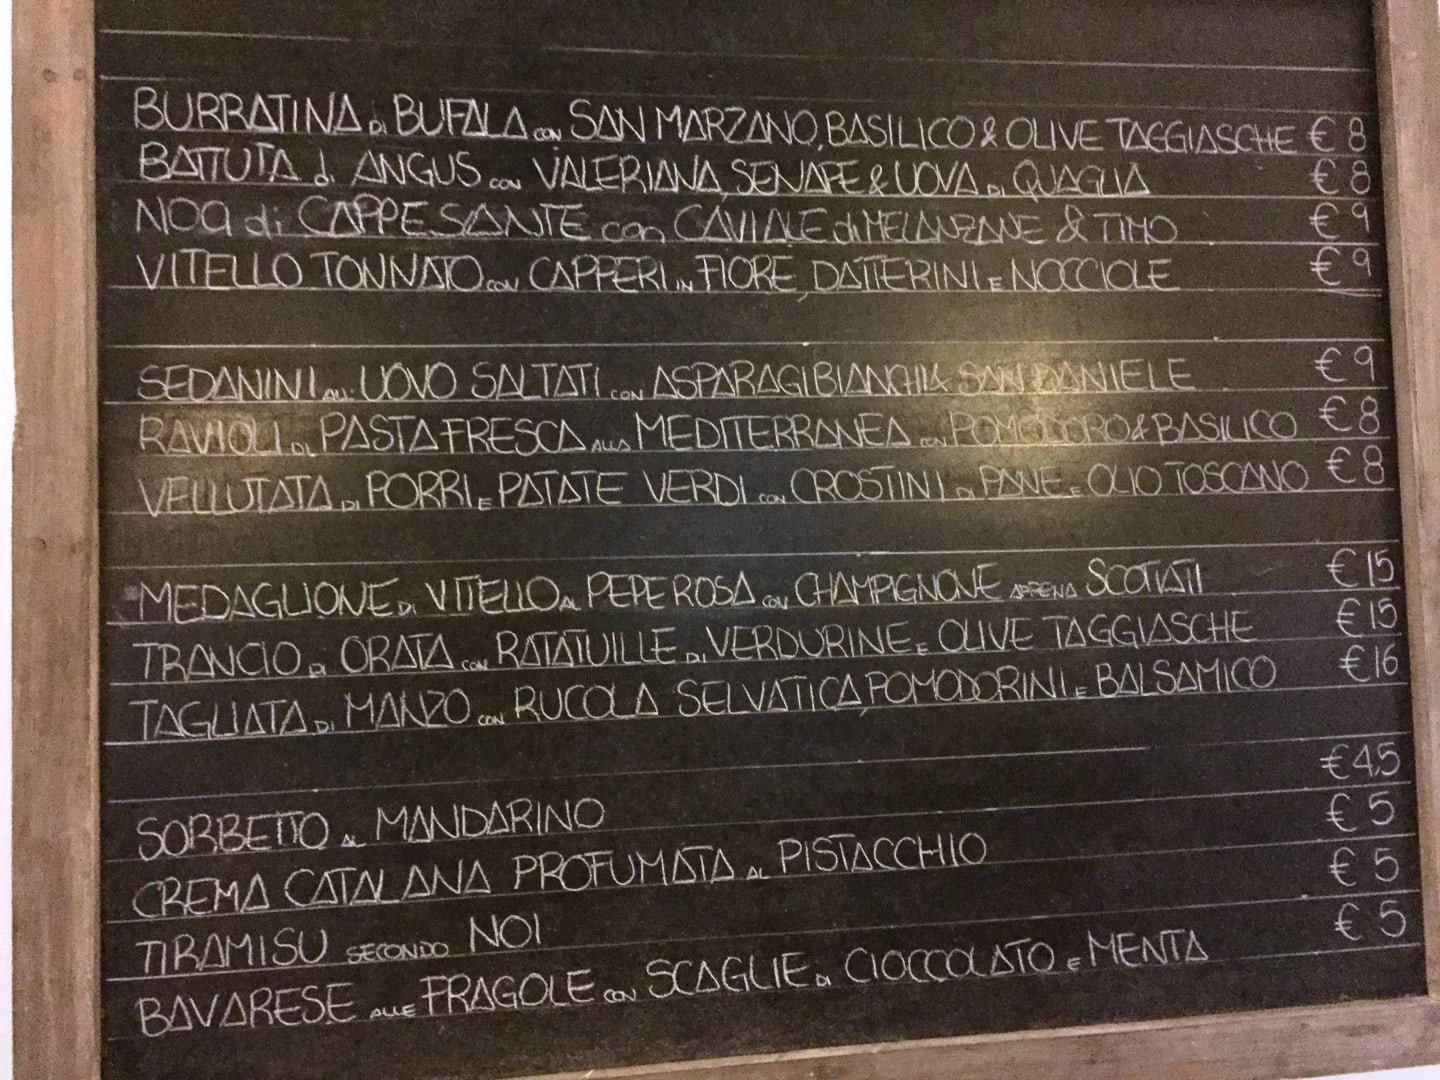 BURRATINA DI BUFALA CON SAN MARZANO, BASILICO & OLIVE TAGGIASCHE € 8
BATTUTA di ANGUS CON VALERIANA, SENAPE & UOVA DI QUAGLIA € 8
NOA di CAPPESANTE con CAVIALE di MELANZANE & TIMO € 9
VITELLO TONNATO CON CAPPERI IN FIORE, DATTERINI E NOCCIOLE € 9
SEDANINI ALL' UOVO SALTATI CON ASPARAGI BIANCHI & SAN DANIELE € 9
RAVIOLI DI PASTA FRESCA ALLA MEDITERRANEA CON POMODORO & BASILICO € 8
VELLUTATA DI PORRI E PATATE VERDI CON CROSTINI DI PANE E OLIO TOSCANO € 8
MEDAGLIONE DI VITELLO AL PEPE ROSA CON CHAMPIGNONE APPENA SCOTTATI € 15
TRANCIO DI ORATA CON RATATUILLE DI VERDURINE E OLIVE TAGGIASCHE € 15
TAGLIATA DI MANZO CON RUCOLA SELVATICA, POMODORINI E BALSAMICO € 16
SORBETTO AL MANDARINO € 4,5
CREMA CATALANA PROFUMATA AL PISTACCHIO € 5
TIRAMISU SECONDO NOI € 5
BAVARESE ALLE FRAGOLE CON SCAGLIE DI CIOCCOLATO E MENTA € 5